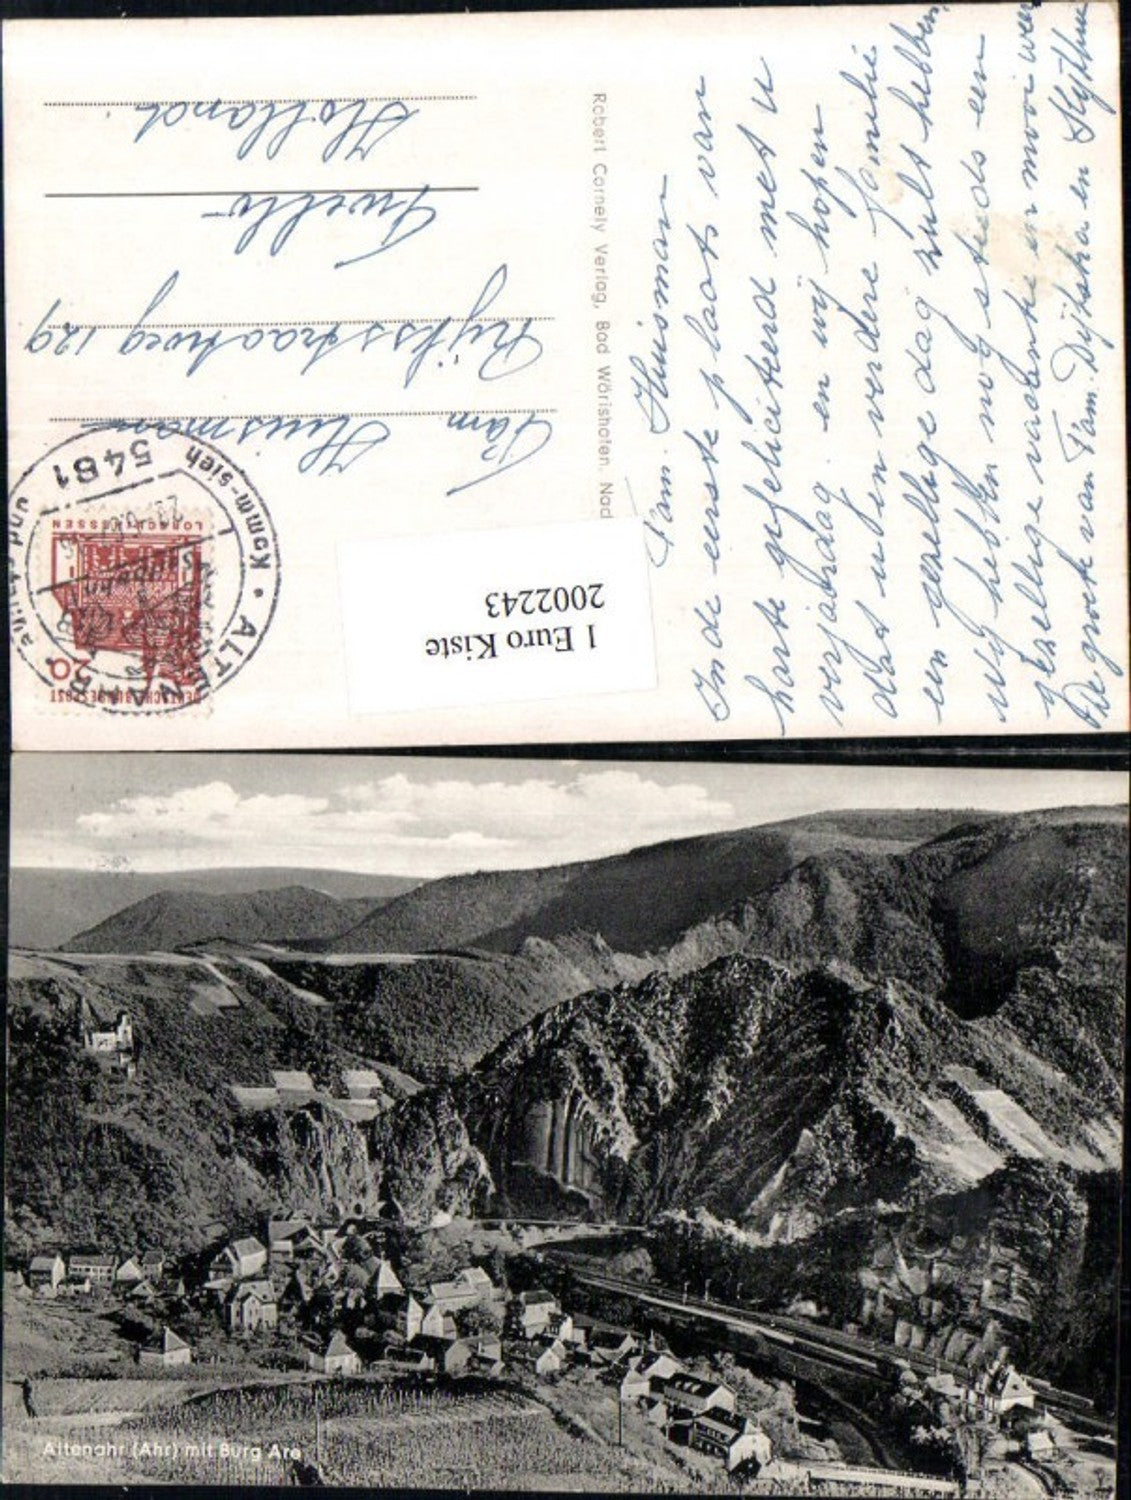 Fam. Huisman
In de eerste plaats van
harte gefeliciteerd met u
verjaardag. en wij hopen
dat u en verdere familie
een gezellige dag zult hebben,
wij hebben nog steeds een
gezellige vacantie en mooi weer
De groeten van Fam. Dijkstra en
Robert Cornely Verlag, Bad Wörishofen. Nad
Fam. Huisman
Rijksstraatweg 129
Twello
Holland
DEUTSCHE BUNDESPOST
20
LORSCH/HESSEN
5481 ALTENAHR
Komm-sieh und
1 Euro Kiste
2002243
Altenahr (Ahr) mit Burg Are